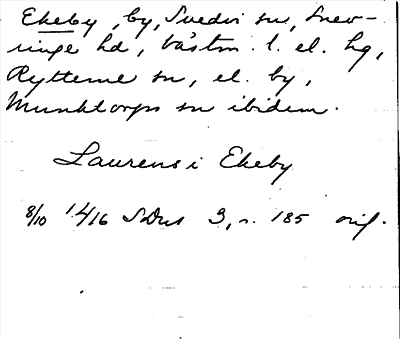 Ekeby, by, Svedvi sn, Snev-
ringe hd, Västm. l. el. hg,
Rytterne sn, el. by,
Munktorps sn ibidem.
Laurens i Ekeby
8/10 1416 SDns 3, n. 185 orig.